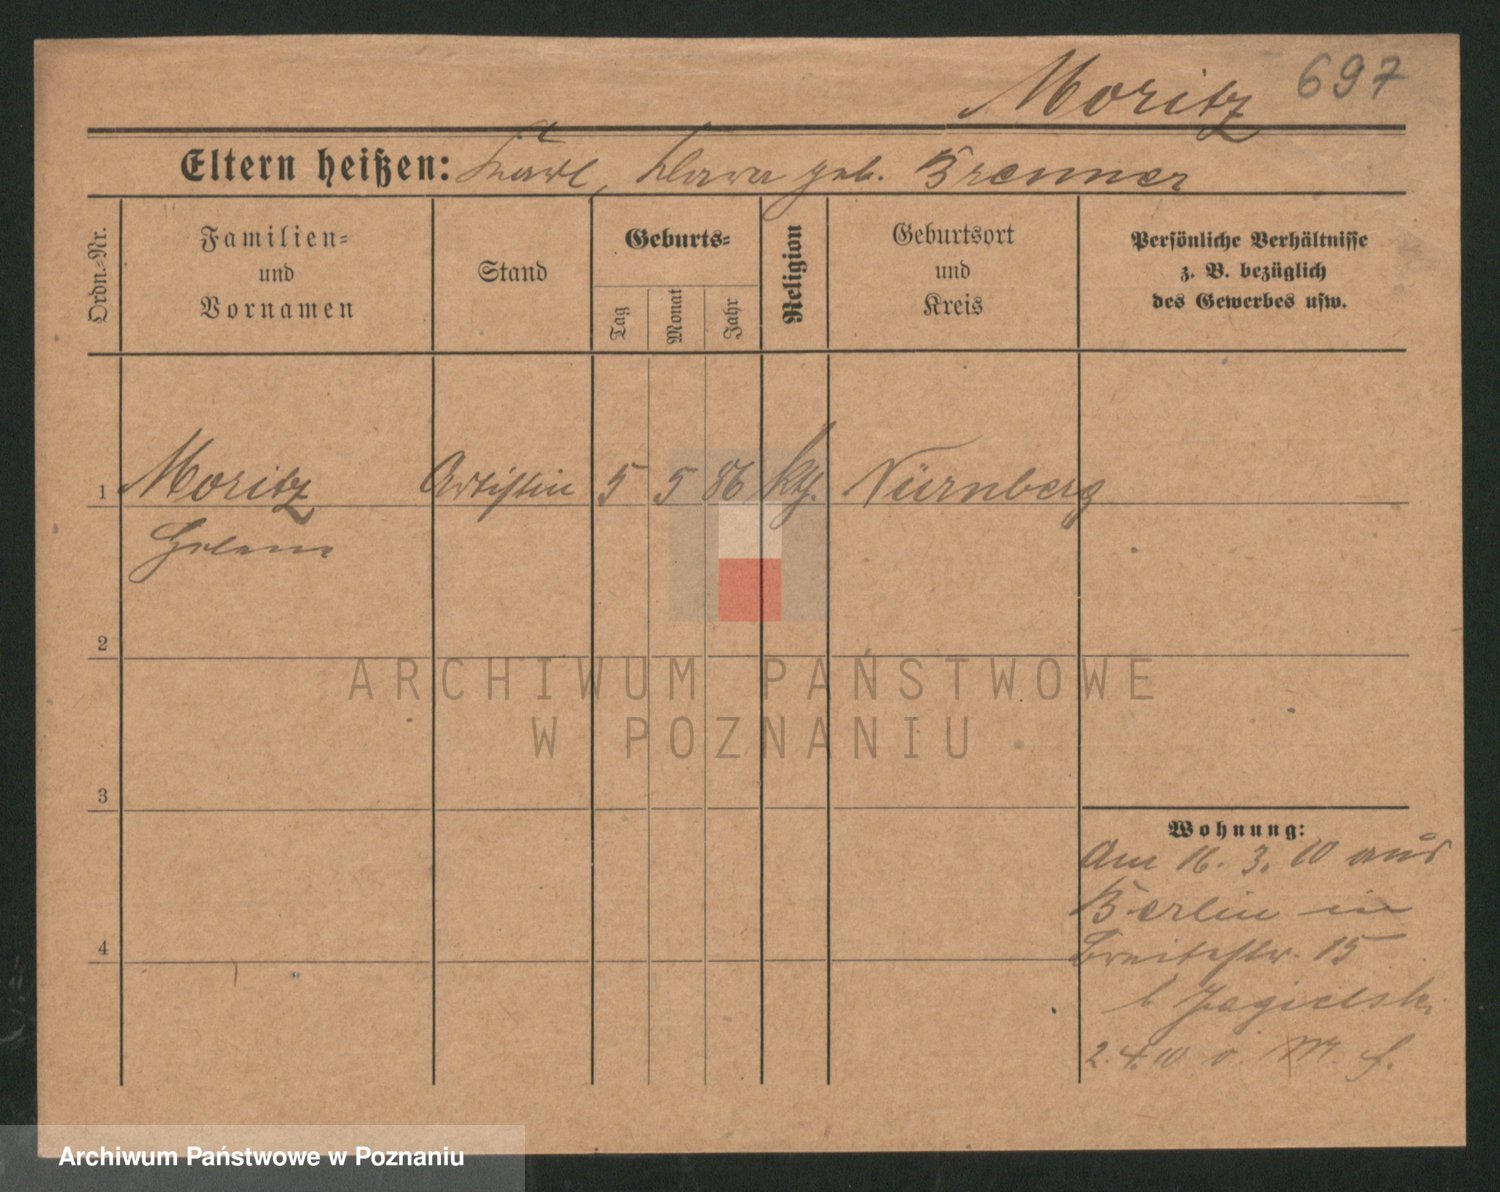 Moritz 697
Eltern heißen: Karl, Klara geb. Brenner
Ordn.-Nr.
Familien-
und
Vornamen
Stand
Geburts-
Tag
Monat
Jahr
Religion
Geburtsort
und
Kreis
Persönliche Verhältnisse
z. B. bezüglich
des Gewerbes usw.
1 Moritz Artistin 5 5 86 kth. Nürnberg
Helene
2
ARCHIWUM PAŃSTWOWE
W POZNANIU
3
Wohnung:
Am 16. 3. 10 aus
Berlin in
Breitestr. 15
b Jagielski
4
2. 4. 10 v.
Archiwum Państwowe w Poznaniu